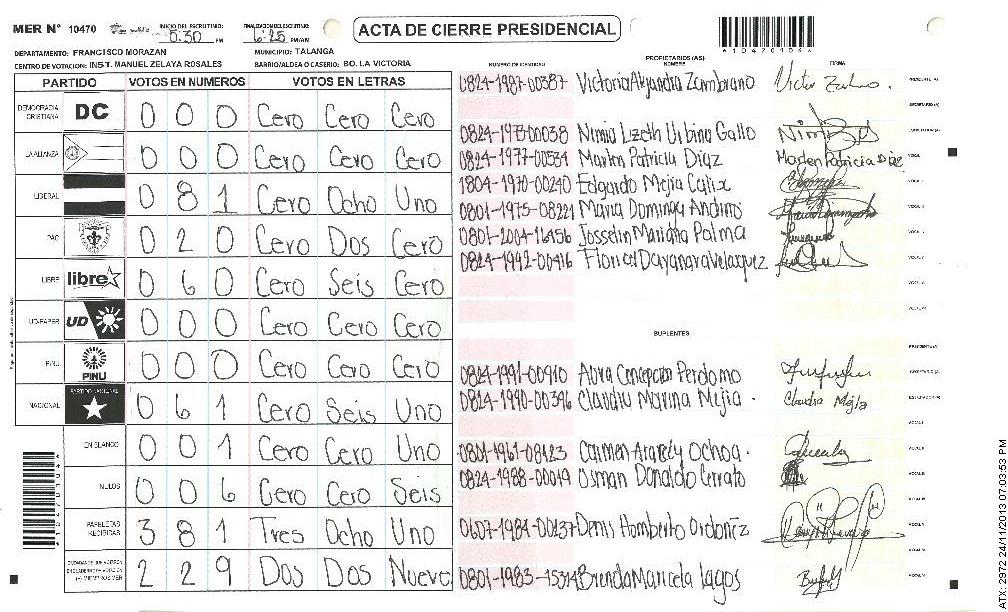 MER N° 10470 INICIO DEL ESCRUTINIO: 5:30 PM FINALIZACION DEL ESCRUTINIO: 6:25 PM/AM ACTA DE CIERRE PRESIDENCIAL
DEPARTAMENTO: FRANCISCO MORAZAN MUNICIPIO: TALANGA
CENTRO DE VOTACION: INST. MANUEL ZELAYA ROSALES BARRIO/ALDEA O CASERIO: BO. LA VICTORIA
PARTIDO VOTOS EN NUMEROS VOTOS EN LETRAS
DEMOCRACIA CRISTIANA DC 0 0 0 Cero Cero Cero
LA ALIANZA 0 0 0 Cero Cero Cero
LIBERAL 0 8 1 Cero Ocho Uno
PAC 0 2 0 Cero Dos Cero
LIBRE libre 0 6 0 Cero Seis Cero
UD-FAPER UD 0 0 0 Cero Cero Cero
PINU PINU 0 0 0 Cero Cero Cero
NACIONAL PARTIDO NACIONAL 0 6 1 Cero Seis Uno
EN BLANCO 0 0 1 Cero Cero Uno
NULOS 0 0 6 Cero Cero Seis
PAPELETAS RECIBIDAS 3 8 1 Tres Ocho Uno
2 2 9 Dos Dos Nueve
NUMERO DE IDENTIDAD PROPIETARIOS (AS) NOMBRE FIRMA
0824-1987-00387 Victoria Alejandra Zambrano
0824-1973-00038 Nimia Lizeth Urbina Gallo
0824-1977-00534 Marlen Patricia Diaz Marlen Patricia Diaz
1804-1970-00240 Edgardo Mejia Calix
0801-1975-08221 Maria Domingu Andino
0801-2004-16456 Josselin Mariana Palma
0824-1992-00416 Flor Dayanara Velasquez
SUPLENTES
0824-1991-00910 Alba Concepcion Perdomo
0824-1990-00396 Claudia Marina Mejia. Claudia Mejia
0801-1961-08423 Carmen Aracely Ochoa.
0824-1988-00019 Osman Donaldo Cerrato
0607-1984-00237 Denis Homberto Ordoñez
0801-1983-15314 Brenda Maricela Lagos
ATX 2972 24/11/2013 07:03:53 PM